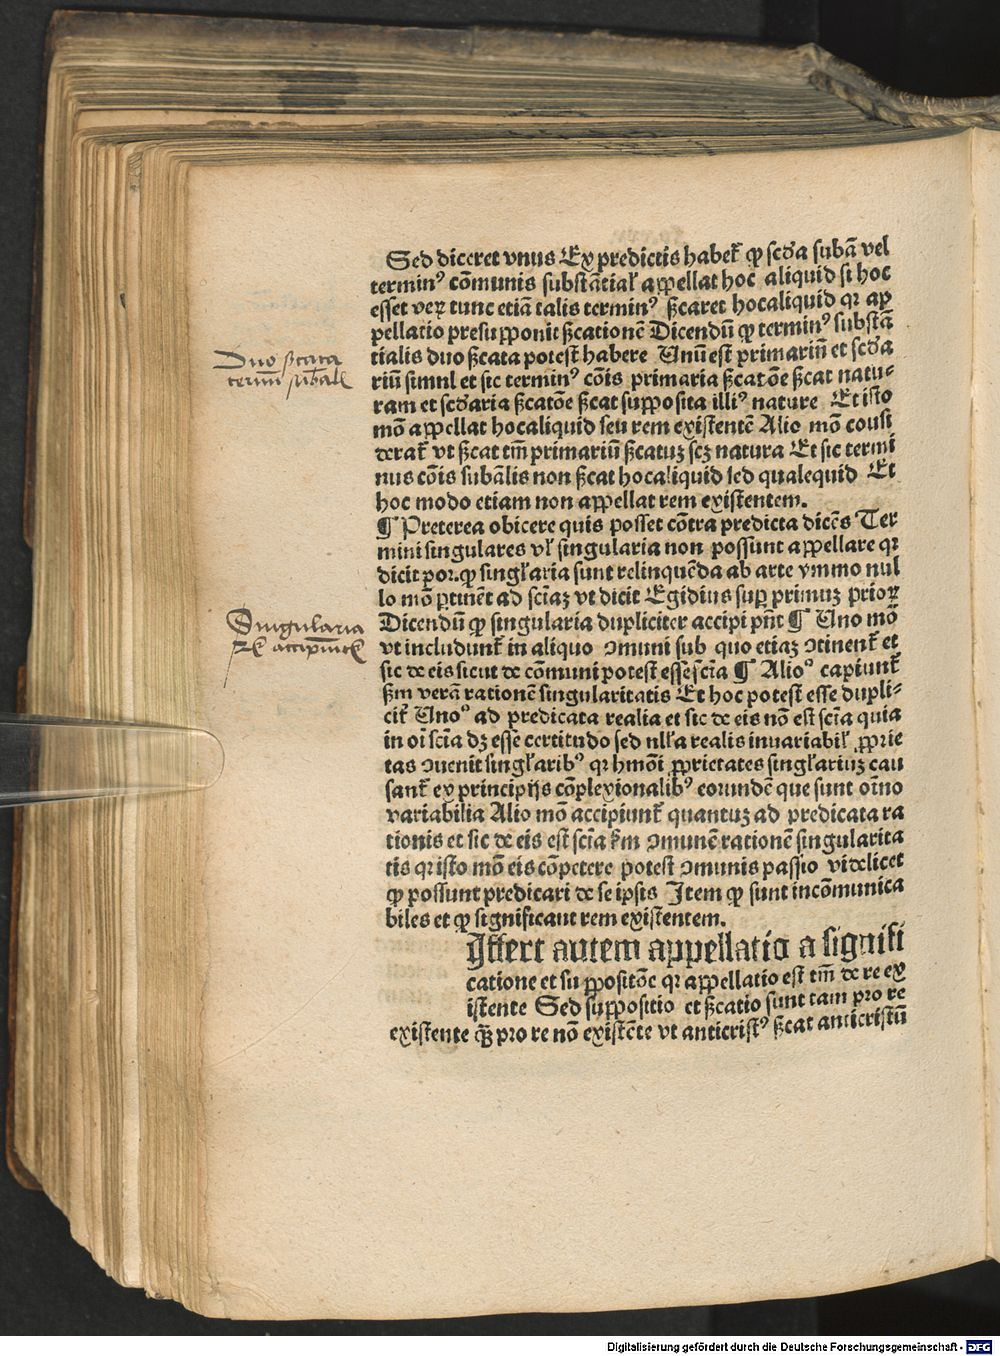 Sed diceret vnus Ex predictis habet̄ ꝙ scd̄a subā vel
terminꝰ cōmunis substātial̄ appellat hoc aliquid si hoc
esset veꝝ tunc etiā talis terminꝰ ſ̄caret hocaliquid qꝛ ap
pellatio presupponit ſ̄cationē Dicendū ꝙ terminꝰ substā
tialis duo ſ̄cata potest habere Unū est primariū et scd̄a
riū simul et sic terminꝰ cōis primaria ſ̄catōe ſ̄cat natu⸗
ram et scd̄aria ſ̄catōe ſ̄cat supposita illiꝰ nature Et isto
mō appellat hocaliquid seu rem existentē Alio mō consi
derat̄ vt ſ̄cat tm̄ primariū ſ̄catuꝫ scꝫ natura Et sic termi
nus cōis subālis non ſ̄cat hocaliquid sed qualequid Et
hoc modo etiam non appellat rem existentem.
¶ Preterea obicere quis posset cōtra predicta dicēs Ter
mini singulares vl̄ singularia non possunt appellare qꝛ
dicit por. ꝙ singl̄aria sunt relinquēda ab arte ymmo nul
lo mō ꝑtinēt ad sciāꝫ vt dicit Egidius suꝑ primuꝫ prioꝝ
Dicendū ꝙ singularia dupliciter accipi pn̄t ¶ Uno mō
vt includunt̄ in aliquo ↄmuni sub quo etiaꝫ ↄtinent̄ et
sic de eis sicut de cōmuni potest esse scīa ¶ Alioº capiunt̄
ſ̄m verā rationē singularitatis Et hoc potest esse dupli⸗
cit̄ Unoº ad predicata realia et sic de eis nō est scīa quia
in oī scīa dꝫ esse certitudo sed nll̄a realis inuariabil̄ ꝓprie
tas ↄuenit singl̄aribꝰ qꝛ hmōi ꝓprietates singl̄ariuꝫ cau
sant̄ ex principijs cōplexionalibꝰ eorundē que sunt oīno
variabilia Alio mō accipiunt̄ quantuꝫ ad predicata ra
tionis et sic de eis est scīa ſ̄m ↄmunē rationē singularita
tis qꝛ isto mō eis cōpetere potest ↄmunis passio videlicet
ꝙ possunt predicari de se ipsis Item ꝙ sunt incōmunica
biles et ꝙ significant rem existentem.
Iffert autem appellatio a signifi
catione et suppositōe qꝛ appellatio est tm̄ de re ex
istente Sed suppositio et ſ̄catio sunt tam pro re
existente qꝫ̄ pro re nō existēte vt anticristꝰ ſ̄cat anticristū
Duo ſ̄cata
Singularia
Digitalisierung gefördert durch die Deutsche Forschungsgemeinschaft - DFG